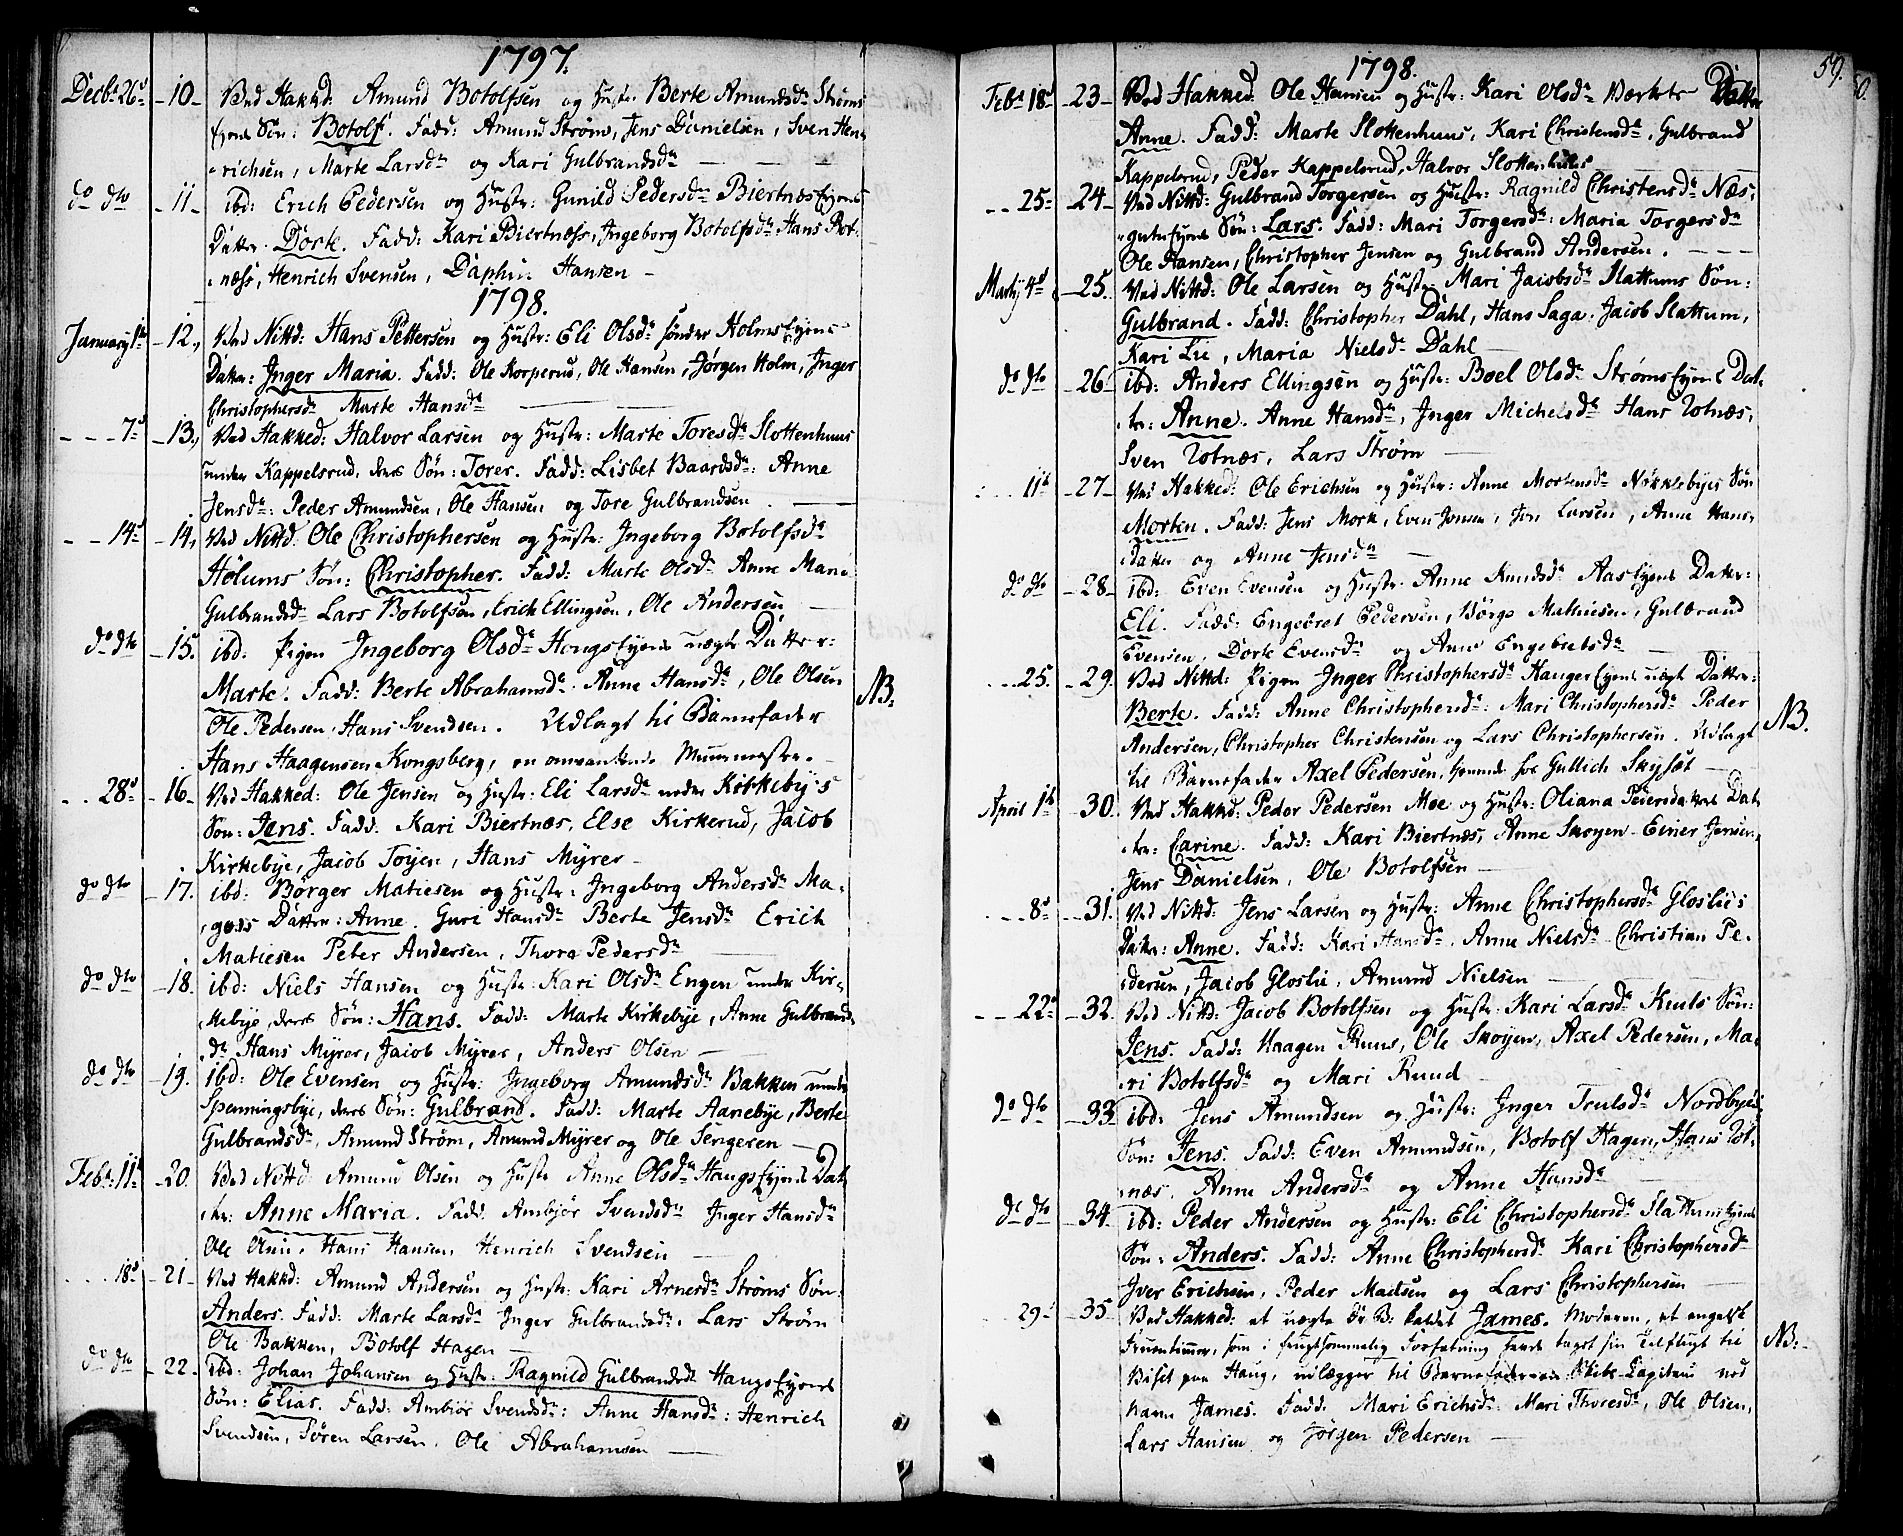 1797.
Decbr 26d -10- Ved Hakked. Amund Botolfsen og Hustr: Berte Amundsdtr Strøms
Eyens Søn: Botolf. Fadd: Amund Strøm, Jens Danielsen, Sven Hen-
richsen, Marte Larsdtr og Kari Gulbrandsdtr
do dto -11- ibd: Erich Pedersen og Hustr: Gunild Pedersdtr Biertnæs Eyens
Datter: Dorte. Fadd: Kari Biertnæss, Ingeborg Botolfsdtr Hans Rot-
næss, Henrich Svensen, Daphin Hansen -
1798.
January 1ste -12., Ved Nittd: Hans Pettersen og Hustr: Eli Olsdtr sønder Holms Eyens
Datter: Inger Maria. Fadd: Ole Korperud, Ole Hansen, Jørgen Holm, Inger
Christophersdtr Marte Hansdtr
- - - 7d -13., Ved Hakked: Halvor Larsen og Hustr: Marte Toresdtr Slottenhuus
under Kappelsrud, deres Søn: Torer. Fadd: Lisbet Baardsdtr: Anne
Jensdtr: Peder Amundsen, Ole Hansen og Tore Gulbrandsen
- - 14d -14., Ved Nittd: Ole Christophersen og Hustr: Ingeborg Botolfsdtr
Hølums Søn: Christopher. Fadd: Marte Olsdtr Anne Marie
Gulbrandsdtr Lars Botolfsen, Erich Ellingsen, Ole Andersen
do dto -15. ibd: Pigen Ingeborg Olsdtr Haugs Eyens uægte Datter:
Marte. Fadd: Berte Abrahamsdtr. Anne Hansdtr, Ole Olsen NB:
Ole Pedersen, Hans Svendsen. Udlagt til Barnefader
Hans Haagensen Kongsberg, en omvankende Muurmester.
. . 28d -16- Ved Hakked: Ole Jensen og Hustr: Eli Larsdtr neder Kirkeby's
Søn: Jens. Fadd: Kari Biertnæs, Else Kirkerud, Jacob
Kirkebye, Jacob Toyen, Hans Myrer -
do dto -17. ibd: Børger Matiesen og Hustr: Ingeborg Andersdtr Ma-
Datter: Anne. Guri Hansdtr Berte Jensdtr Erich
Matiesen Peter Andersen, Thora Pedersdtr
do dto -18. ibd: Niels Hansen og Hustr: Kari Olsdtr Engen under Kir-
kebye, deres Søn: Hans. Fadd: Marte Kirkebye, Anne Gulbrands-
dtr Hans Myrer, Jacob Myrer, Anders Olsen
do dto -19. ibd: Ole Evensen og Hustr: Ingeborg Amundsdtr Bakken under
Spenningsbye, deres Søn: Gulbrand. Fadd: Marte Aanebye, Berte
Gulbrandsdtr, Amund Strøm, Amund Myrer og Ole Sengeren
Febr: 11te -20. Ved Nittd: Amund Olsen og Hustr Anne Olsdtr Haugs Eyens Dat-
ter: Anne Maria. Fadd: Ambjør Svendsdtr Inger Hansdtr
Ole Hans Hansen, Henrich Svendsen
. . . . 18d -21- Ved Hakkd: Amund Andersen og Hustr: Kari Arnesdtr Strøms Søn:
Anders. Fadd: Marte Larsdtr Inger Gulbrandsdtr. Lars Strøm
Ole Bakken, Botolf Hagen -
do dto -22. ibd: Johan Johansen og Hustr: Ragnild Gulbrandsdtr Haugs Eyens
Søn: Elias. Fadd: Ambiør Svendsdtr: Anne Hansdtr: Henrich
Svendsen, Søren Larsen, Ole Abrahamsen
1798. 59.
Febr 18d -23- Ved Hakked: Ole Hansen og Hustr: Kari Olsdtr Værkets Datter
Anne. Fadd: Marte Slottenhuus, Kari Christensdtr, Gulbrand
Kappelsrud, Peder Kappelsrud, Halvor Slottenhuus
- - 25d -24- Ved Nittd: Gulbrand Torgersen og Hustr: Ragnild Christensdtr Næs-
Eyens Søn: Lars. Fadd: Mari Torgersdtr: Maria Torgersdtr
Ole Hansen, Christopher Jensen og Gulbrand Andersen.
Marty 4d -25. Ved Nittd: Ole Larsen og Hustr Mari Jacobsdtr Slattums Søn:
Gulbrand. Fadd: Christopher Dahl, Hans Saga. Jacob Slattum,
Kari Lie, Maria Nielsdtr Dahl
do dto -26- ibd: Anders Ellingsen og Hustr: Boel Olsdtr Strøms Eyens Dat-
ter: Anne. Anne Hansdtr, Inger Michelsdtr Hans Rotnæs,
Sven Rotnæs, Lars Strøm
. . . 11te -27- Ved Hakked: Ole Erichsen og Hustr: Anne Mortensdtr Nøkklebyes Søn
Morten. Fadd: Jens Mork, Even Jonsen, Jon Larsen, Anne Hans-
Datter og Anne Jensdtr
do dto -28- ibd: Even Evensen og Hustr: Anne Knudsdtr Aas Eyens Datter:
Eli. Fadd: Engebret Pedersen, Børge Mathiesen, Gulbrand
Evensen, Dorte Evensdtr og Anne Engebretsdtr
. . . 25. -29. Ved Nittd: Pigen Inger Christophersdtr Hauger Eyens uægte Datter:
Berte. Fadd: Anne Christophersdtr: Mari Christophersdtr Peder NB.
Andersen, Christopher Christensen og Lars Christophersen. Udlagt
til Barnefader Axel Pedersen, tienende hos Gullich Skyset
April 1te -30. Ved Hakkd: Peder Pedersen Moe og Hustr: Oliana Dat-
ter: Carine. Fadd: Kari Biertnæs, Anne Skoyen - Einer Jensen,
Jens Danielsen, Ole Botolfsen
. . . 8d -31. Ved Nittd: Jens Larsen og Hustr: Anne Christophersdtr Gloslies
Datter: Anne. Fadd: Kari Hansdtr. Anne Nielsdtr Christian Pe-
dersen, Jacob Gloslie, Amund Nielsen
- - 22d -32. Ved Nittd: Jacob Botolfsen og Hustr: Kari Larsdtr Søn:
Jens. Fadd: Haagen Ruus, Ole Skoyen, Axel Pedersen, Ma-
ri Botolfsdtr og Mari Ruud
do dto -33 ibd: Jens Amundsen og Hustr: Inger Trulsdtr Nordbyes
Søn: Jens. Fadd: Even Amundsen, Botolf Hagen, Hans Rot-
næs. Anne Andersdtr og Anne Hansdtr
do dto -34. ibd: Peder Andersen og Hustr: Eli Christophersdtr Slattums Eyens
Søn: Anders. Fadd: Anne Christophersdtr Kari Christophersdtr
Iver Erichsen, Peder Madsen og Lars Christophersen
29d 35 Ved Hakked: et uægte Dr: B: kaldet James. Moderen, et engelsk
Fruentimmer, som i frugtsommelig Forfatning havde taget sin Tilflugt til NB:
paa Haug, udlægger til Barnefader en Skibs-Capitain ved
Navn James. Fadd: Mari Erichsdtr: Mari Thoresdtr, Ole Olsen,
Lars Hansen og Jørgen Pedersen